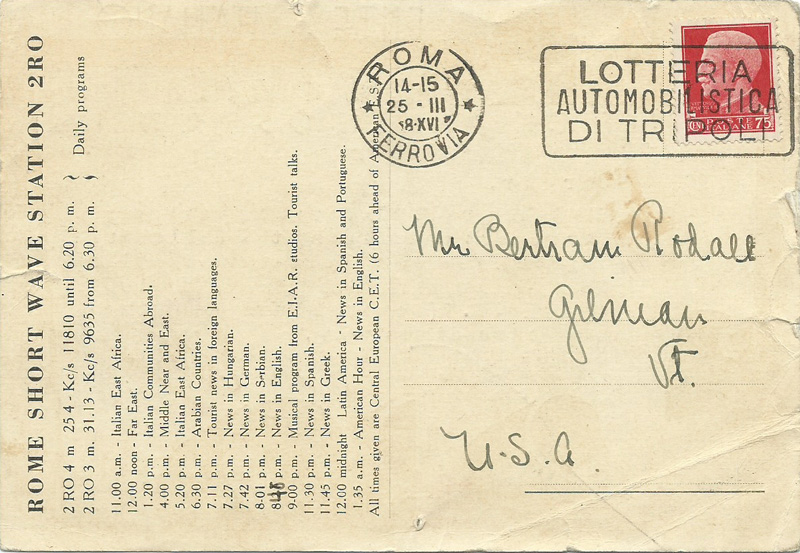 ROME SHORT WAVE STATION 2RO
2 RO 4 m 25 4 - Kc/s 11810 until 6.20 p. m.
2 RO 3 m. 31.13 - Kc/s 9635 from 6.30 p. m.
} Daily programs
11.00 a.m. - Italian East Africa.
12.00 noon - Far East.
1.20 p.m. - Italian Communities Abroad.
4.00 p.m. - Middle Near and East.
5.20 p.m. - Italian East Africa.
6.30 p.m. - Arabian Countries.
7.11 p.m. - Tourist news in foreign languages.
7.27 p.m. - News in Hungarian.
7.42 p.m. - News in German.
8-01 p.m. - News in Serbian.
p.m. - News in English.
9.00 p.m. - Musical program from E.I.A.R. studios. Tourist talks.
11.30 p.m. - News in Spanish.
11.45 p.m. - News in Greek.
12.00 midnight Latin America - News in Spanish and Portuguese.
1.35 a.m. - American Hour - News in English.
All times given are Central European C.E.T. (6 hours ahead of American E.S.
ROMA
14-15
25 - III
8·XVI
FERROVIA
LOTTERIA
AUTOMOBILISTICA
DI TRIPOLI
POSTE
ITALIANE 75
Mr Bertram Rodall
Gilman
Vt.
U.S.A.